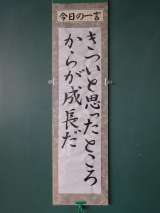 今日の一言
きついと思ったところ
からが成長だ